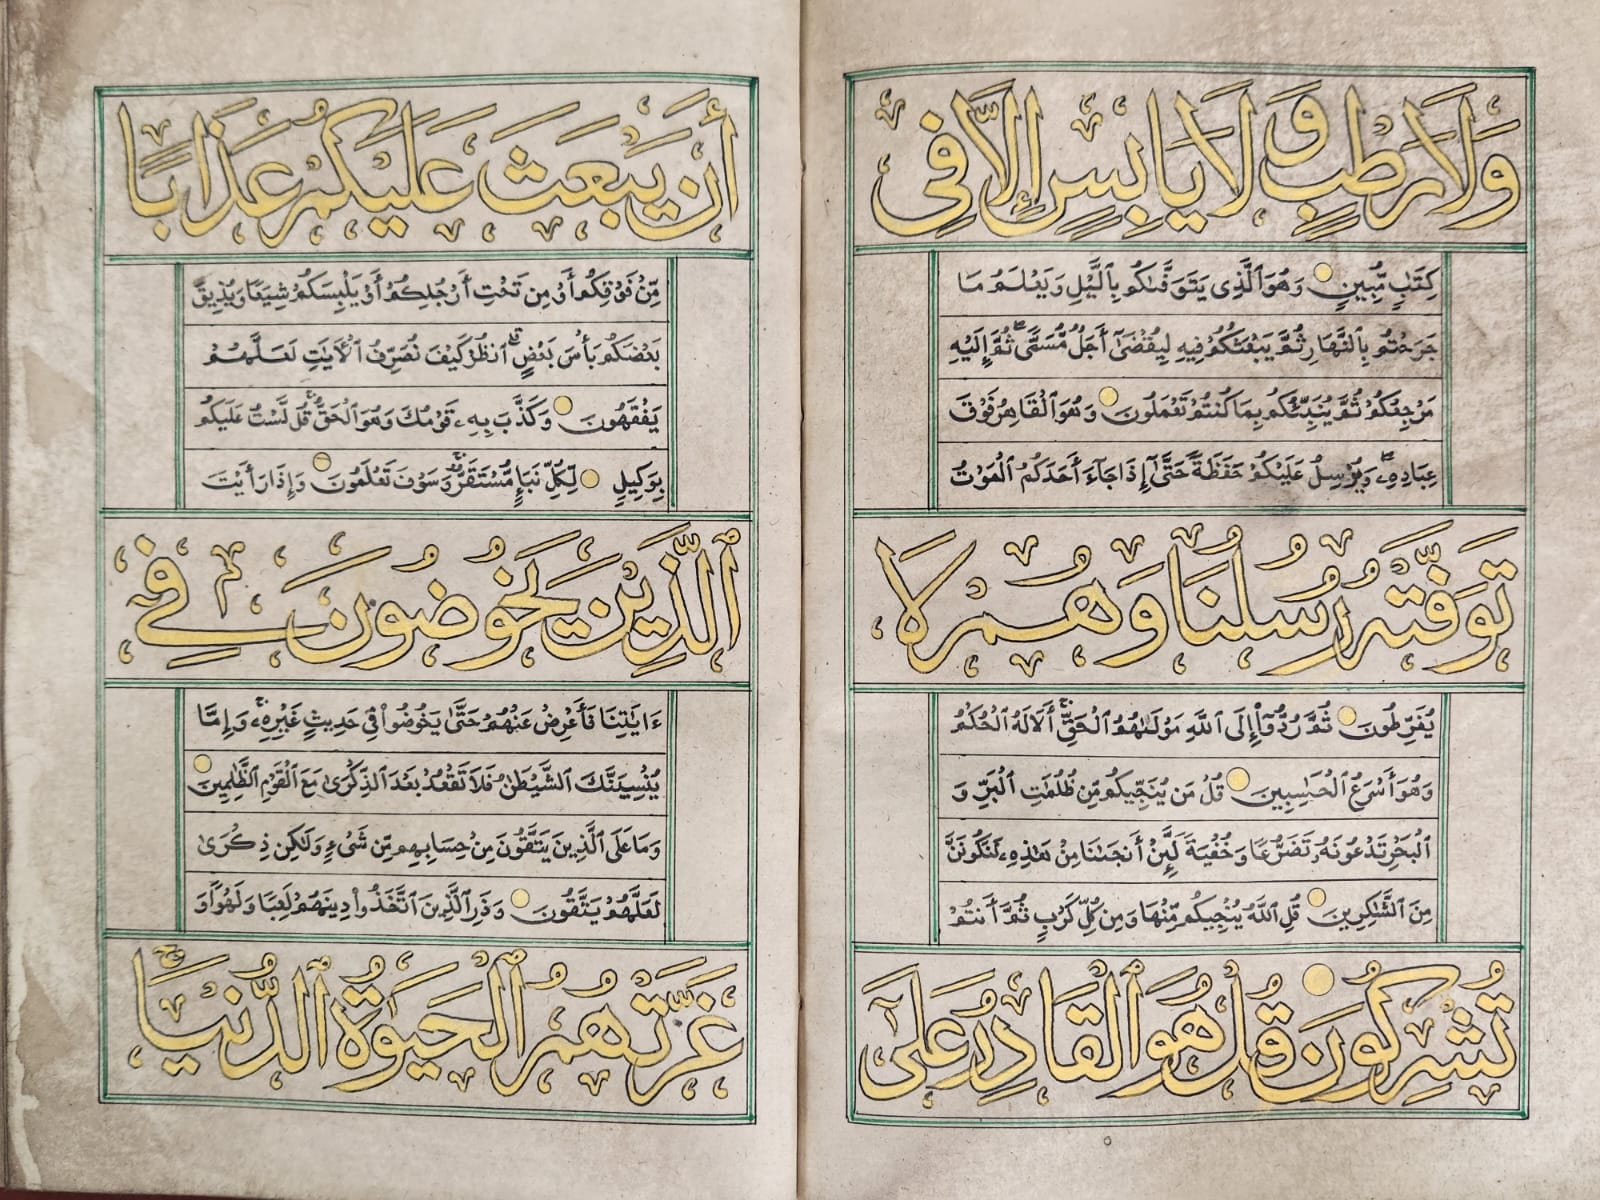 وَلَا رَطْبٍ وَلَا يَابِسٍ إِلَّا فِي
كِتَٰبٍ مُّبِينٍ وَهُوَ ٱلَّذِى يَتَوَفَّىٰكُم بِٱلَّيْلِ وَيَعْلَمُ مَا
جَرَحْتُم بِٱلنَّهَارِ ثُمَّ يَبْعَثُكُمْ فِيهِ لِيُقْضَىٰٓ أَجَلٌ مُّسَمًّى ۖ ثُمَّ إِلَيْهِ
مَرْجِعُكُمْ ثُمَّ يُنَبِّئُكُم بِمَا كُنتُمْ تَعْمَلُونَ وَهُوَ ٱلْقَاهِرُ فَوْقَ
عِبَادِهِۦ ۖ وَيُرْسِلُ عَلَيْكُمْ حَفَظَةً حَتَّىٰٓ إِذَا جَآءَ أَحَدَكُمُ ٱلْمَوْتُ
تَوَفَّتْهُ رُسُلُنَا وَهُمْ لَا
يُفَرِّطُونَ ثُمَّ رُدُّوٓا۟ إِلَى ٱللَّهِ مَوْلَىٰهُمُ ٱلْحَقِّ ۚ أَلَا لَهُ ٱلْحُكْمُ
وَهُوَ أَسْرَعُ ٱلْحَٰسِبِينَ قُلْ مَن يُنَجِّيكُم مِّن ظُلُمَٰتِ ٱلْبَرِّ وَ
ٱلْبَحْرِ تَدْعُونَهُۥ تَضَرُّعًا وَخُفْيَةً لَّئِنْ أَنجَىٰنَا مِنْ هَٰذِهِۦ لَنَكُونَنَّ
مِنَ ٱلشَّٰكِرِينَ قُلِ ٱللَّهُ يُنَجِّيكُم مِّنْهَا وَمِن كُلِّ كَرْبٍ ثُمَّ أَنتُمْ
تُشْرِكُونَ قُلْ هُوَ ٱلْقَادِرُ عَلَىٰٓ
أَن يَبْعَثَ عَلَيْكُمْ عَذَابًا
مِّن فَوْقِكُمْ أَوْ مِن تَحْتِ أَرْجُلِكُمْ أَوْ يَلْبِسَكُمْ شِيَعًا وَيُذِيقَ
بَعْضَكُم بَأْسَ بَعْضٍ ۗ ٱنظُرْ كَيْفَ نُصَرِّفُ ٱلْءَايَٰتِ لَعَلَّهُمْ
يَفْقَهُونَ وَكَذَّبَ بِهِۦ قَوْمُكَ وَهُوَ ٱلْحَقُّ ۚ قُل لَّسْتُ عَلَيْكُم
بِوَكِيلٍ لِّكُلِّ نَبَإٍ مُّسْتَقَرٌّ ۚ وَسَوْفَ تَعْلَمُونَ وَإِذَا رَأَيْتَ
ٱلَّذِينَ يَخُوضُونَ فِىٓ
ءَايَٰتِنَا فَأَعْرِضْ عَنْهُمْ حَتَّىٰ يَخُوضُوا۟ فِى حَدِيثٍ غَيْرِهِۦ ۚ وَإِمَّا
يُنسِيَنَّكَ ٱلشَّيْطَٰنُ فَلَا تَقْعُدْ بَعْدَ ٱلذِّكْرَىٰ مَعَ ٱلْقَوْمِ ٱلظَّٰلِمِينَ
وَمَا عَلَى ٱلَّذِينَ يَتَّقُونَ مِنْ حِسَابِهِم مِّن شَىْءٍ وَلَٰكِن ذِكْرَىٰ
لَعَلَّهُمْ يَتَّقُونَ وَذَرِ ٱلَّذِينَ ٱتَّخَذُوا۟ دِينَهُمْ لَعِبًا وَلَهْوًا وَ
غَرَّتْهُمُ ٱلْحَيَوٰةُ ٱلدُّنْيَا ۚ